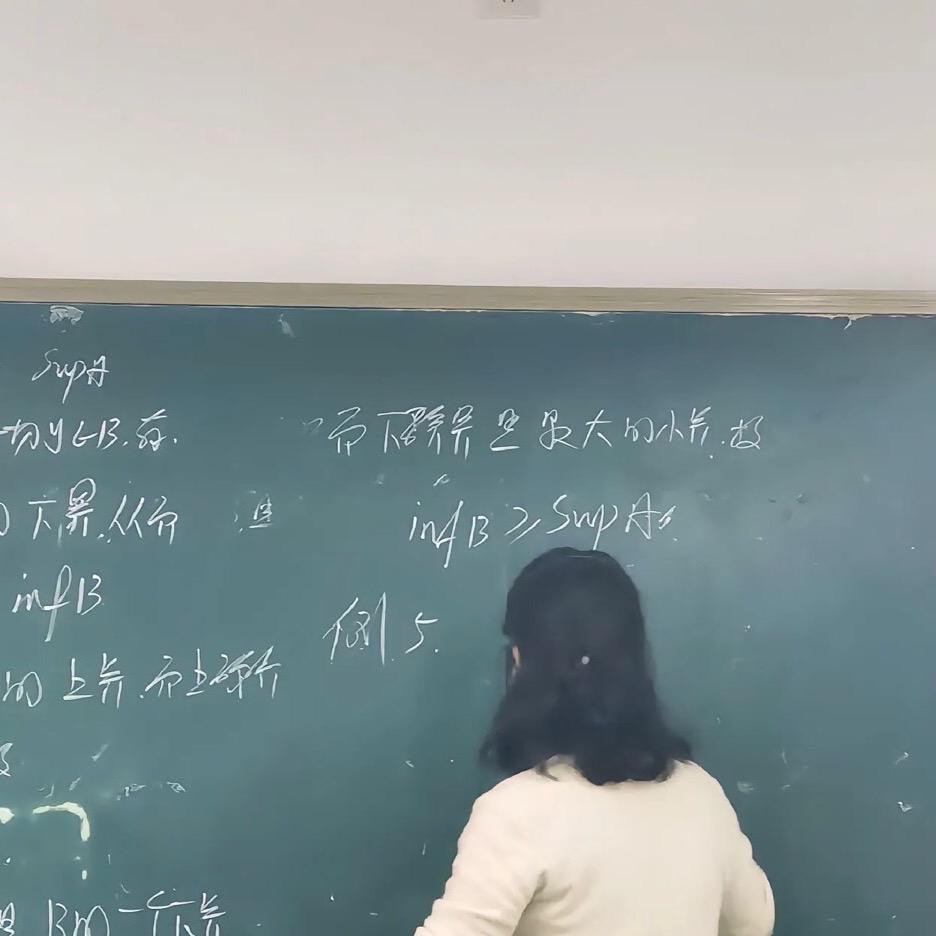 SupA
一切y∈B.有.
下界.从而
inf B
的上界.而上确界
是B的一个下界
而下确界是最大的下界.故
inf B ≥ Sup A.
例5.